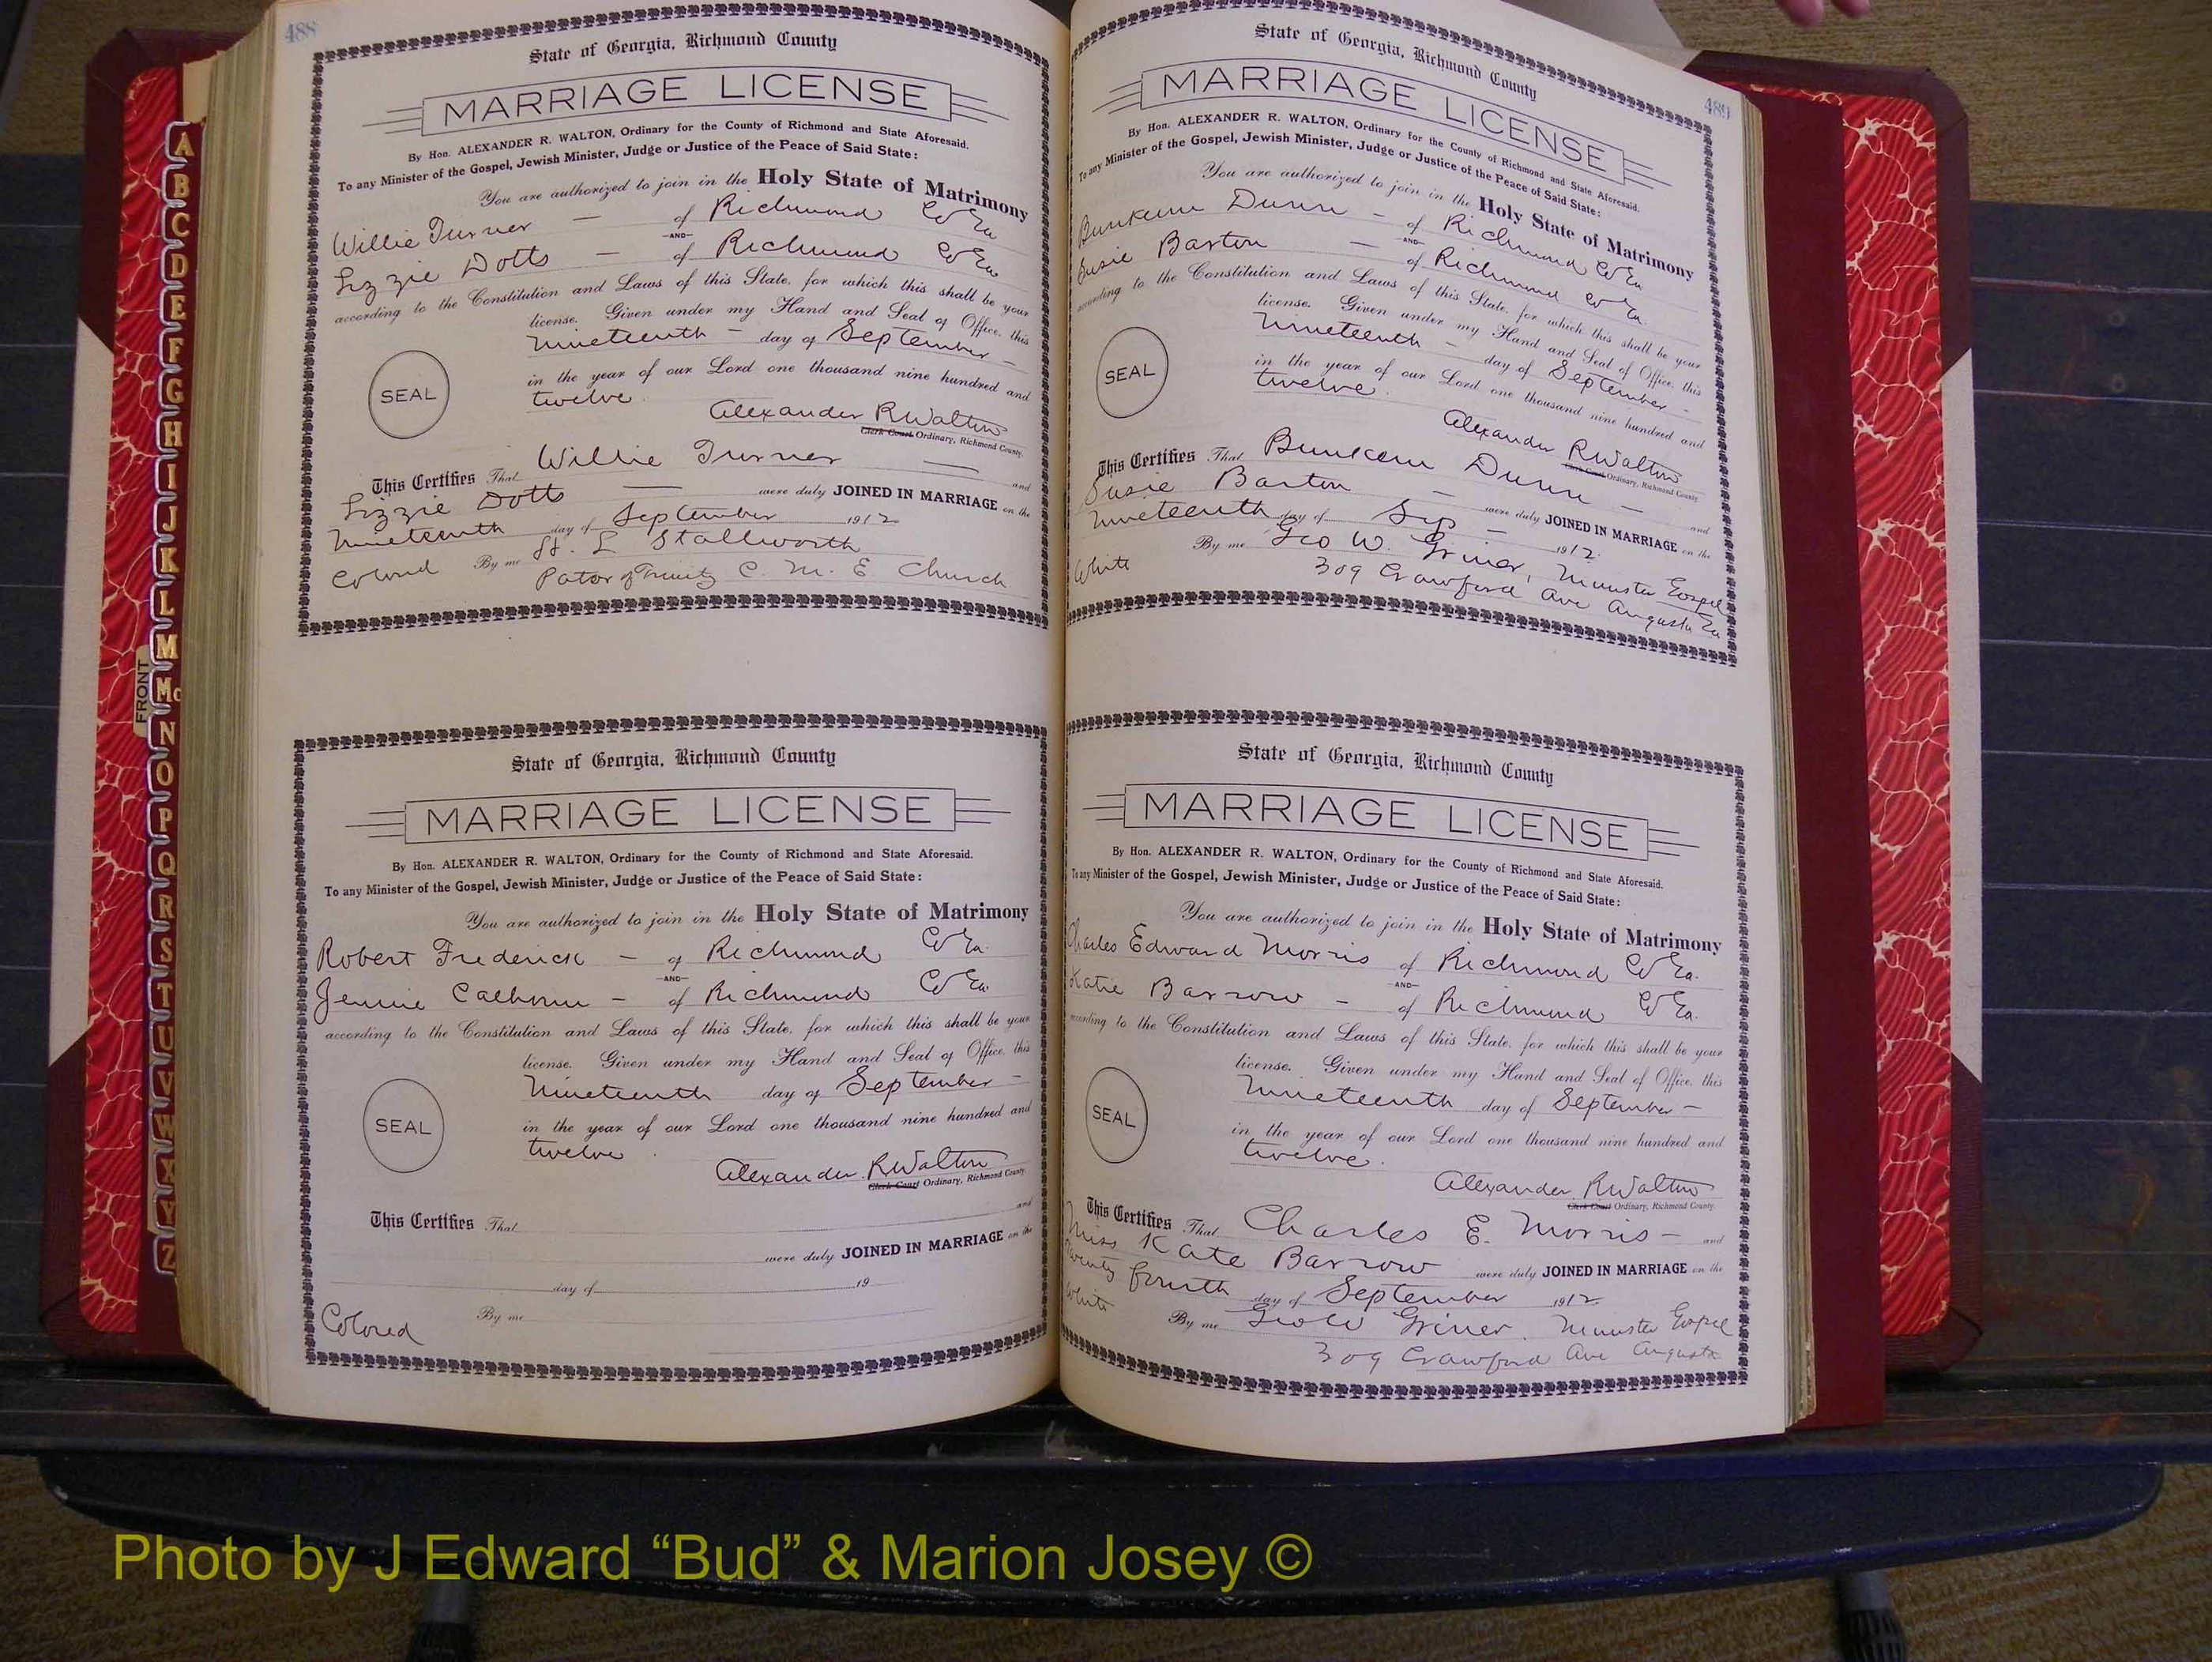 488
State of Georgia, Richmond County
MARRIAGE LICENSE
By Hon. ALEXANDER R. WALTON, Ordinary for the County of Richmond and State Aforesaid.
To any Minister of the Gospel, Jewish Minister, Judge or Justice of the Peace of Said State:
You are authorized to join in the Holy State of Matrimony
Willie Turner — of Richmond Co Ga
—AND—
Lizzie Dotts — of Richmond Co Ga
according to the Constitution and Laws of this State, for which this shall be your
license. Given under my Hand and Seal of Office, this
Nineteenth — day of September —
in the year of our Lord one thousand nine hundred and
SEAL
twelve.
Alexander R Walton
Clerk Court Ordinary, Richmond County.
This Certifies That Willie Turner — and
Lizzie Dotts — were duly JOINED IN MARRIAGE on the
Nineteenth day of September 1912
Colored By me H. L Stallworth
Pator of Trinity C. M. E Church
State of Georgia, Richmond County
MARRIAGE LICENSE
By Hon. ALEXANDER R. WALTON, Ordinary for the County of Richmond and State Aforesaid.
To any Minister of the Gospel, Jewish Minister, Judge or Justice of the Peace of Said State:
You are authorized to join in the Holy State of Matrimony
Robert Frederick — of Richmond Co Ga.
—AND—
Jennie Calhoun — of Richmond Co Ga.
according to the Constitution and Laws of this State, for which this shall be your
license. Given under my Hand and Seal of Office, this
Nineteenth day of September —
in the year of our Lord one thousand nine hundred and
SEAL
twelve.
Alexander R Walton
Clerk Court Ordinary, Richmond County.
This Certifies That and
were duly JOINED IN MARRIAGE on the
day of 19
Colored By me
489
State of Georgia, Richmond County
MARRIAGE LICENSE
By Hon. ALEXANDER R. WALTON, Ordinary for the County of Richmond and State Aforesaid.
To any Minister of the Gospel, Jewish Minister, Judge or Justice of the Peace of Said State:
You are authorized to join in the Holy State of Matrimony
Dunn — of Richmond Co Ga.
—AND—
Susie Barton — of Richmond Co Ga.
according to the Constitution and Laws of this State, for which this shall be your
license. Given under my Hand and Seal of Office, this
Nineteenth — day of September —
in the year of our Lord one thousand nine hundred and
SEAL
twelve.
Alexander R Walton
Clerk Court Ordinary, Richmond County.
This Certifies That Dunn — and
Susie Barton — were duly JOINED IN MARRIAGE on the
Nineteenth day of Sep — 1912.
White By me Geo W. Griner, Minister Gospel
309 Crawford Ave Augusta Ga
State of Georgia, Richmond County
MARRIAGE LICENSE
By Hon. ALEXANDER R. WALTON, Ordinary for the County of Richmond and State Aforesaid.
To any Minister of the Gospel, Jewish Minister, Judge or Justice of the Peace of Said State:
You are authorized to join in the Holy State of Matrimony
Charles Edward Morris of Richmond Co Ga.
—AND—
Katie Barrow — of Richmond Co Ga.
according to the Constitution and Laws of this State, for which this shall be your
license. Given under my Hand and Seal of Office, this
Nineteenth day of September —
in the year of our Lord one thousand nine hundred and
SEAL
twelve.
Alexander R Walton
Clerk Court Ordinary, Richmond County.
This Certifies That Charles E. Morris — and
Miss Kate Barrow were duly JOINED IN MARRIAGE on the
Twenty fourth day of September 1912
White By me Geo W Griner, Minister Gospel
309 Crawford Ave Augusta
A
B
C
D
E
F
G
H
I
J
K
L
M
Mc
N
O
P
Q
R
S
T
U
V
W
X
Y
Z
FRONT
Photo by J Edward “Bud” & Marion Josey ©